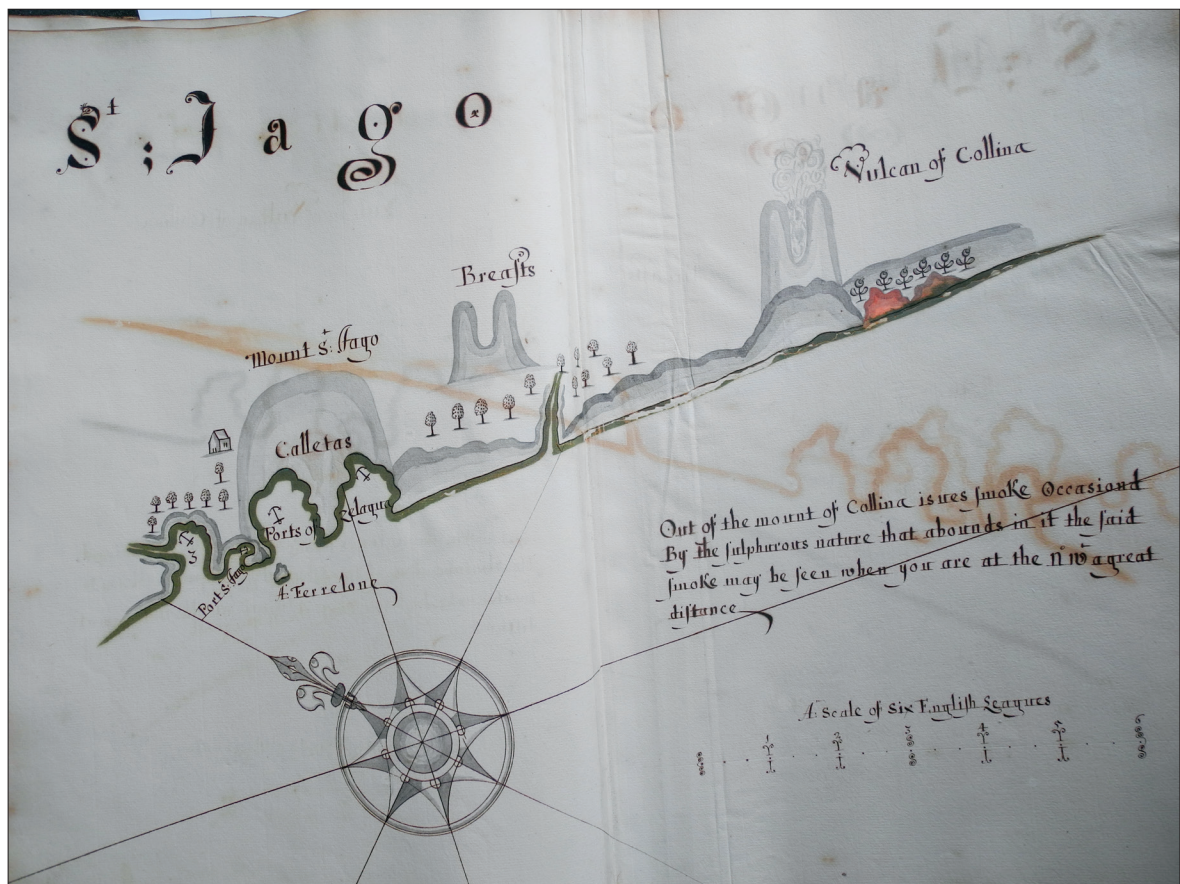 St; Jago
Vulcan of Collina
Breasts
Mount St: Jago
Calletas
Ports of
Port St: Jago
3
A: Ferrelone
Out of the mount of Collina isues smoke Occasiond
By the sulphurous nature that abounds in it the said
smoke may be seen when you are at the NW a great
distance
A: Scale of Six English Leagues
1 2 3 4 5 6